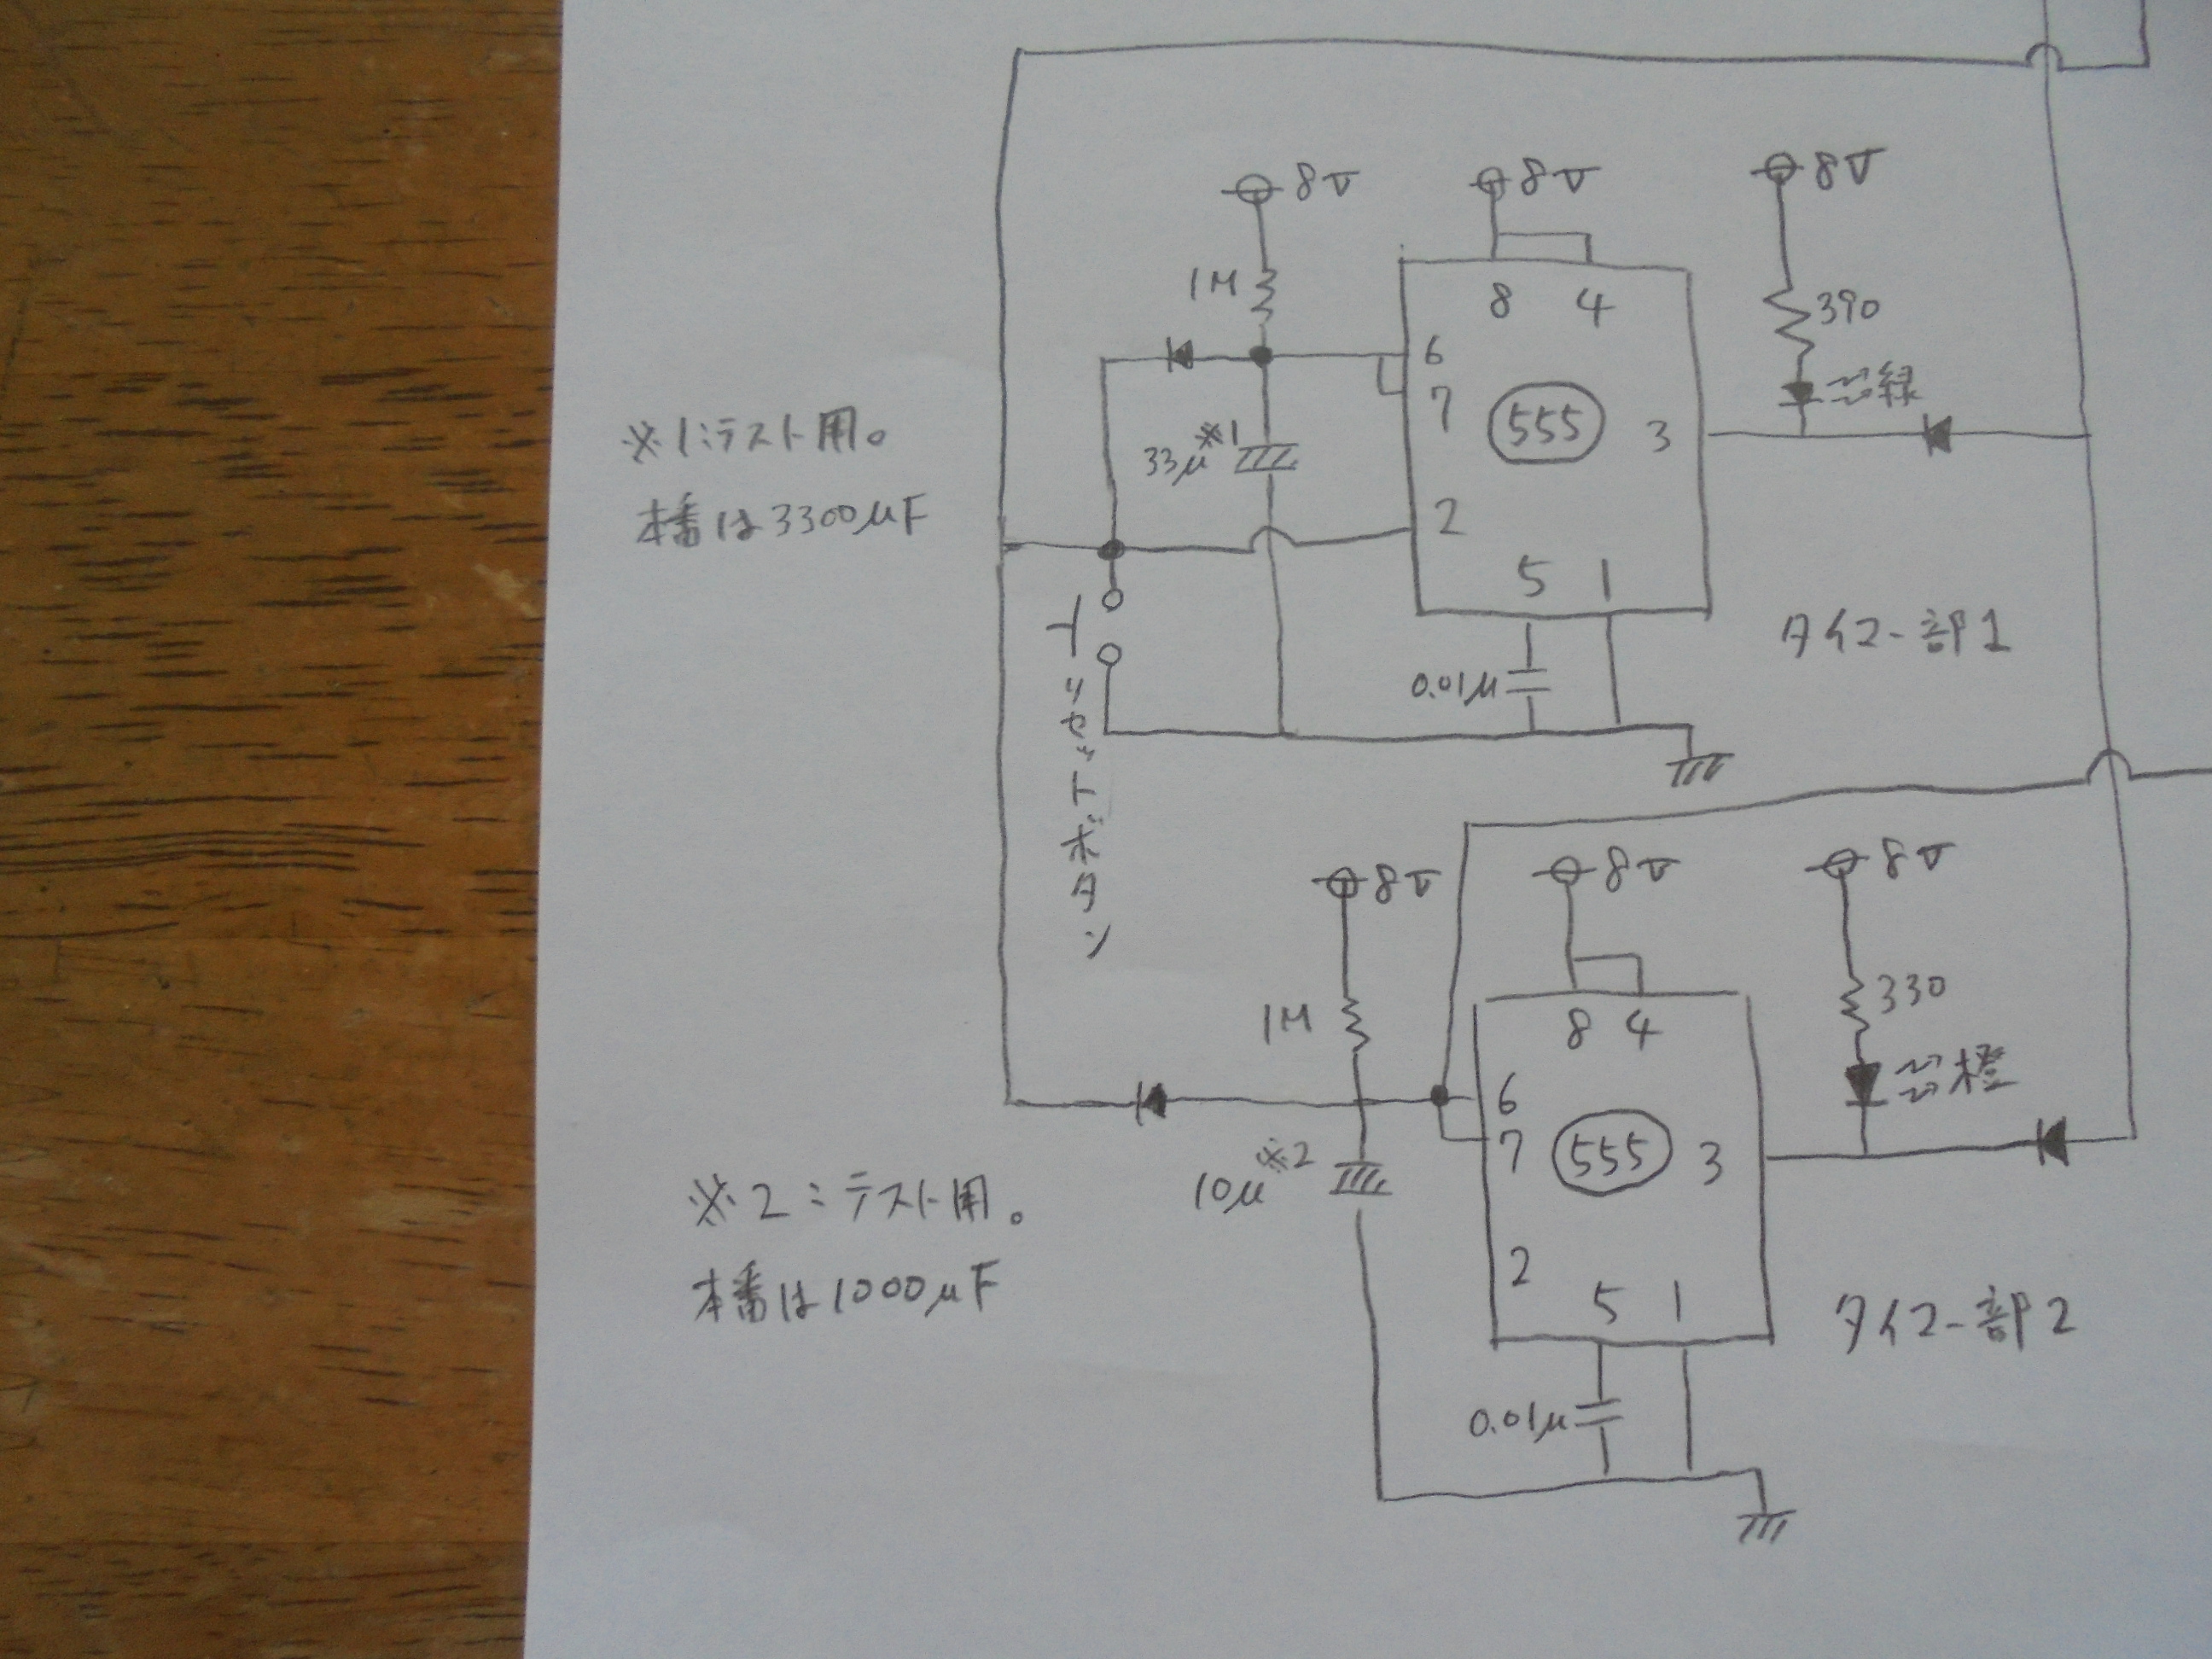 8V
8V
8V
1M
8 4
390
緑
6
7
555
3
33μ※1
※1:テスト用。
本番は3300μF
2
5 1
0.01μ
タイマー部1
リセットボタン
8V
8V
8V
1M
8 4
330
橙
6
7
555
3
10μ※2
※2:テスト用。
本番は1000μF
2
5 1
0.01μ
タイマー部2